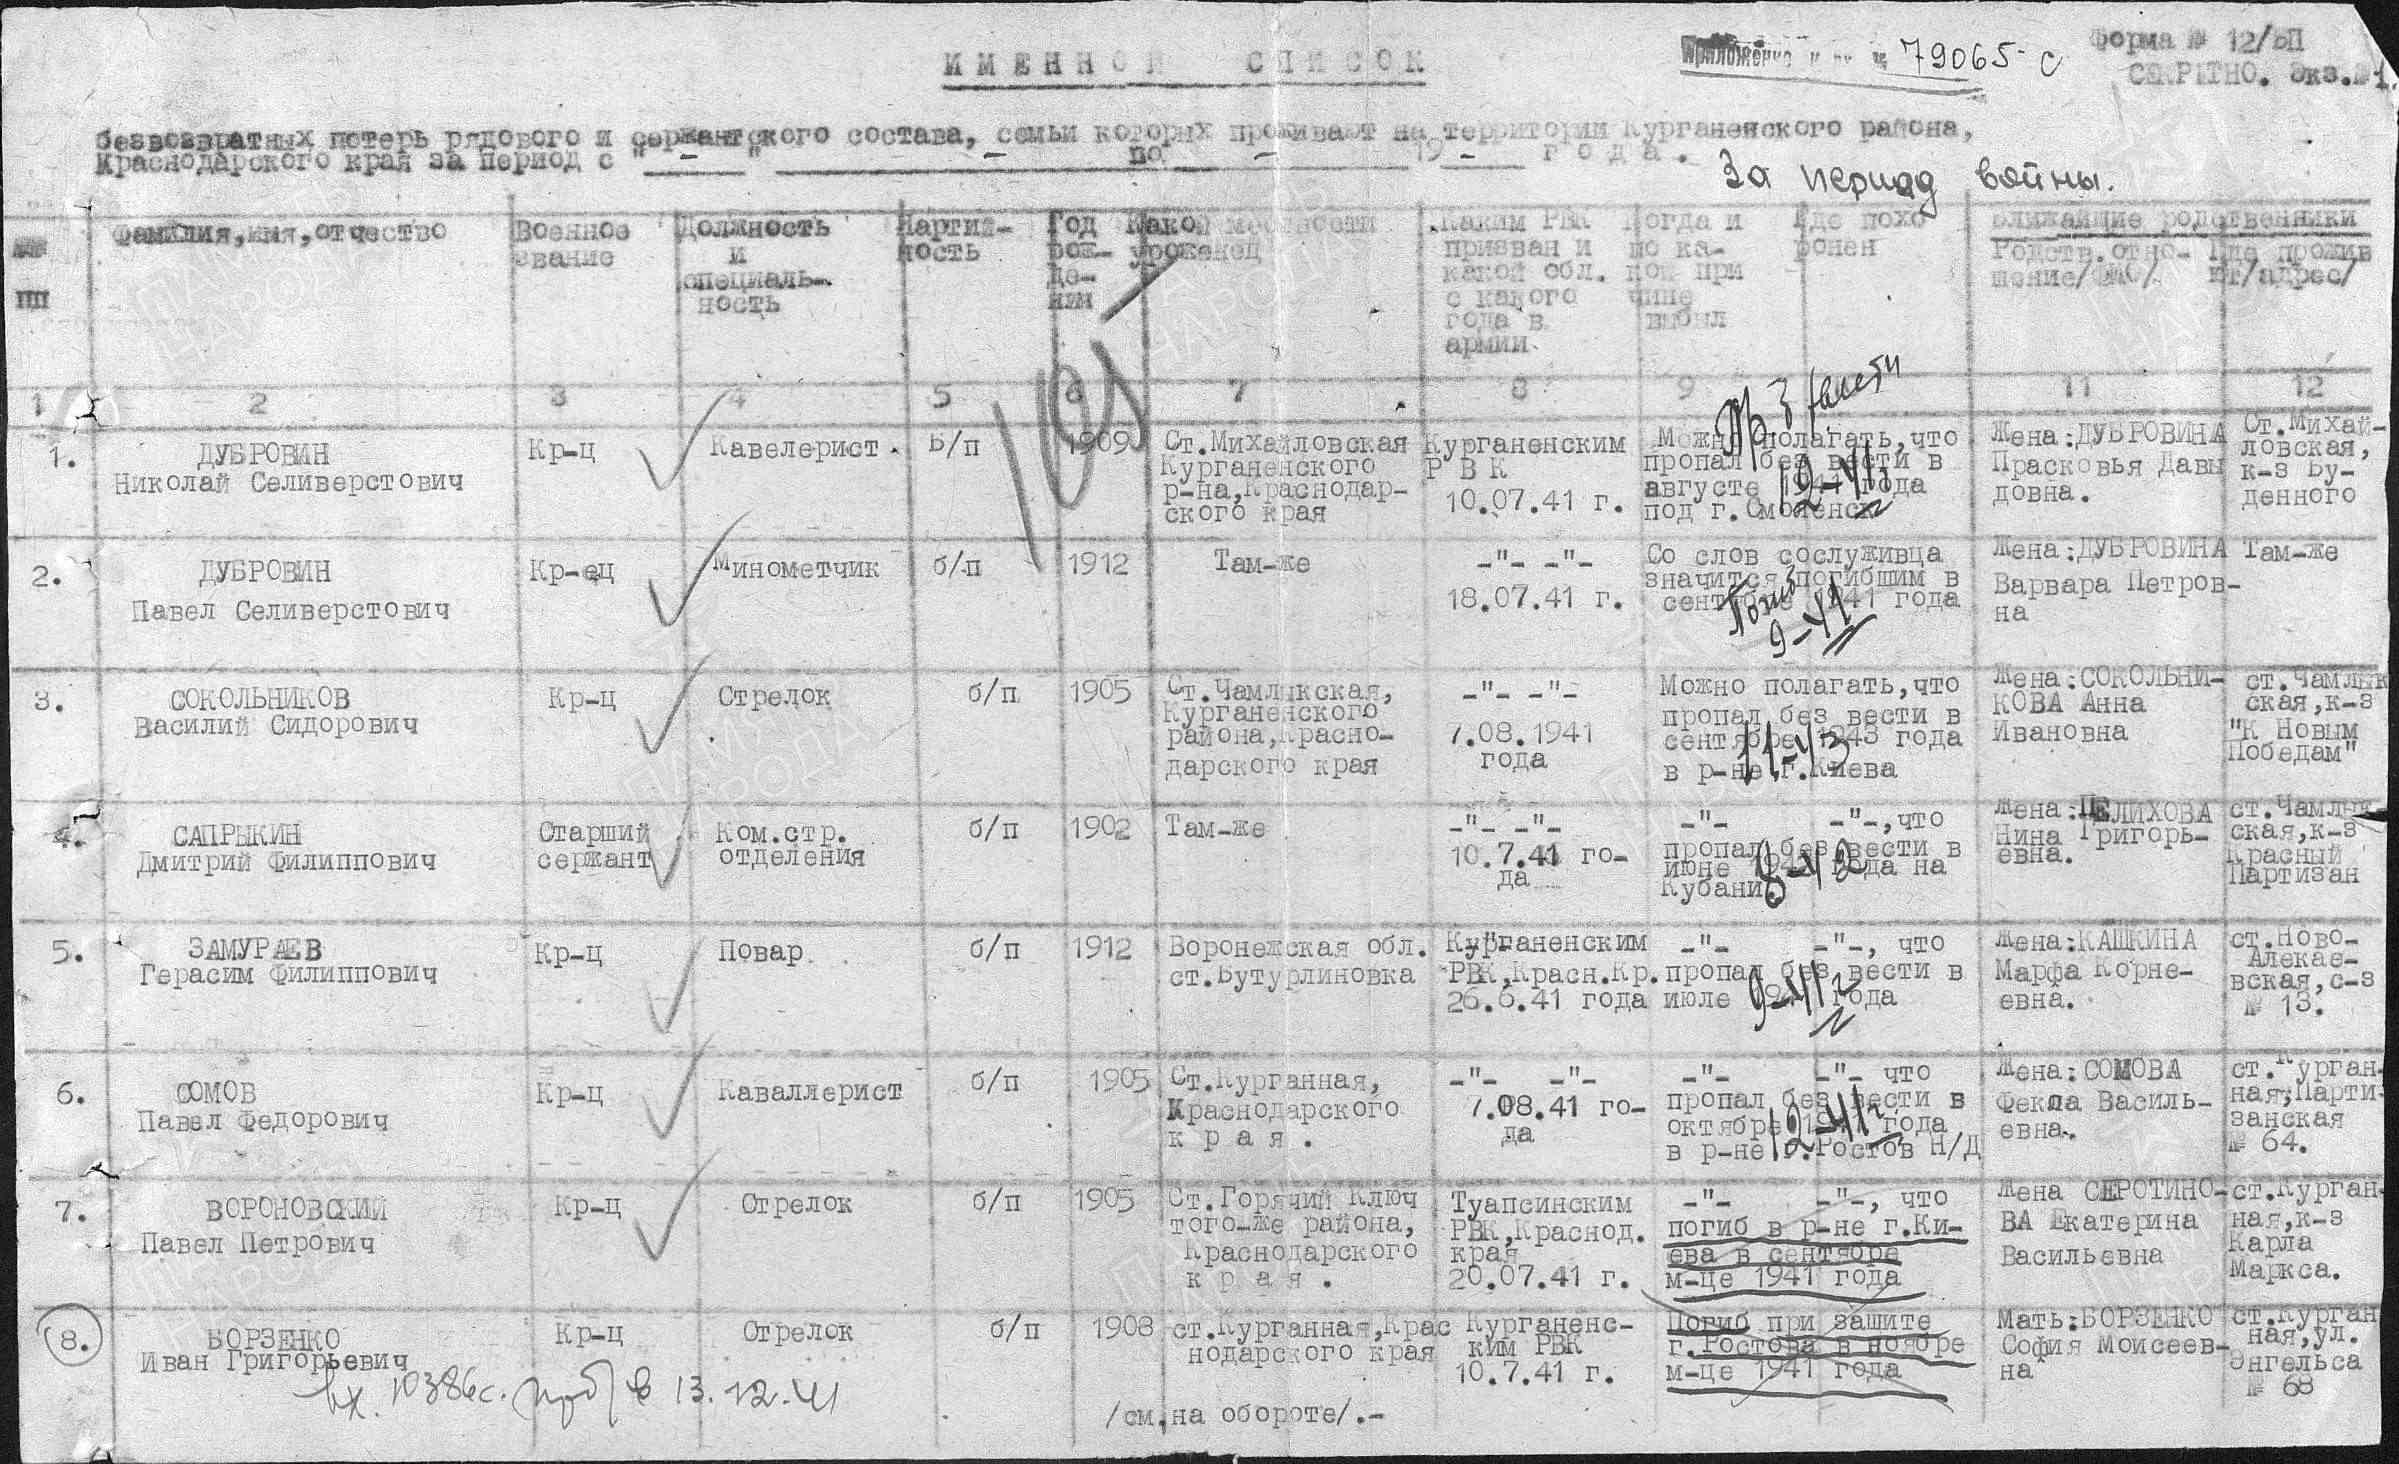 Форма № 12/БП
СЕКРЕТНО. Экз.№1.
79065-с
ИМЕННОЙ СПИСОК
безвозвратных потерь рядового и сержантского состава, семьи которых проживают на территории Курганенского района,
Краснодарского края за период с "-" - по - 19 - года.
За период войны.
№№ пп
Фамилия,имя,отчество
Военное звание
Должность и специаль-ность
Партий-ность
Год рож-де-ния
Какой местности уроженец
Каким РВК призван и какой обл. с какого года в армии.
Когда и по ка-кой при чине выбыл
Где похо ронен
Ближайшие родственники
Родств.отно-шение/ФИО/
Где прожив ют/адрес/
1 2 3 4 5 6 7 8 9 11 12
105
1.
ДУБРОВИН
Николай Селиверстович
Кр-ц
Кавелерист.
Б/п
1909
Ст.Михайловская
Курганенского
р-на,Краснодар-
ского края
Курганенским
Р В К
10.07.41 г.
Можно полагать,что
пропал без вести в
августе 1941 года
под г.Смоленск
12-41
Жена:ДУБРОВИНА
Прасковья Давы
довна.
Ст.Михай-
ловская,
к-з Бу-
денного
2.
ДУБРОВИН
Павел Селиверстович
Кр-ец
Минометчик
б/п
1912
Там-же
-"- -"-
18.07.41 г.
Со слов сослуживца
значится погибшим в
сентябре 1941 года
Погиб
9-41
Жена:ДУБРОВИНА
Варвара Петров-
на
Там-же
3.
СОКОЛЬНИКОВ
Василий Сидорович
Кр-ц
Стрелок
б/п
1905
Ст.Чамлыкская,
Курганенского
района,Красно-
дарского края
-"- -"-
7.08.1941
года
Можно полагать,что
пропал без вести в
сентябре 1943 года
в р-не г.Киева
11-43
Жена:СОКОЛЬНИ-
КОВА Анна
Ивановна
ст.Чамлык
ская,к-з
"К Новым
Победам"
4.
САПРЫКИН
Дмитрий Филиппович
Старший
сержант
Ком.стр.
отделения
б/п
1902
Там-же
-"- -"-
10.7.41 го-
да
-"- -"-,что
пропал без вести в
июне 1942 года на
Кубани.
8-42
Жена:ПЕЛИХОВА
Нина Григорь-
евна.
ст.Чамлык-
ская,к-з
Красный
Партизан
5.
ЗАМУРАЕВ
Герасим Филиппович
Кр-ц
Повар
б/п
1912
Воронежская обл.
ст.Бутурлиновка
Курганенским
РВК,Красн.Кр.
26.6.41 года
-"- -"-, что
пропал без вести в
июле года
Жена:КАШКИНА
Марфа Корне-
евна.
ст.Ново-
Алекае-
вская,с-з
№ 13.
6.
СОМОВ
Павел Федорович
Кр-ц
Каваллерист
б/п
1905
Ст.Курганная,
Краснодарского
к р а я .
-"- -"-
7.08.41 го-
да
-"- -"- что
пропал без вести в
октябре года
в р-не г.Ростов Н/Д
12-41
Жена:СОМОВА
Фекла Василь-
евна.
ст.Курган-
ная,Парти-
занская
№ 64.
7.
ВОРОНОВСКИЙ
Павел Петрович
Кр-ц
Стрелок
б/п
1905
Ст.Горячий Ключ
того-же района,
Краснодарского
к р а я .
Туапсинским
РВК,Краснод.
края
20.07.41 г.
-"- -"-, что
погиб в р-не г.Ки-
ева в сентябре
м-це 1941 года
Жена СЕРОТИНО-
ВА Екатерина
Васильевна
ст.Курган-
ная,к-з
Карла
Маркса.
8.
БОРЗЕНКО
Иван Григорьевич
Кр-ц
Стрелок
б/п
1908
ст.Курганная,Крас
нодарского края
Курганенс-
ким РВК
10.7.41 г.
Погиб при защите
г.Ростова в ноябре
м-це 1941 года
Мать:БОРЗЕНКО
София Моисеев-
на
ст.Курган
ная,ул.
Энгельса
№ 68
вх. 10386с. проп б/в 13.12.41
/см.на обороте/.-